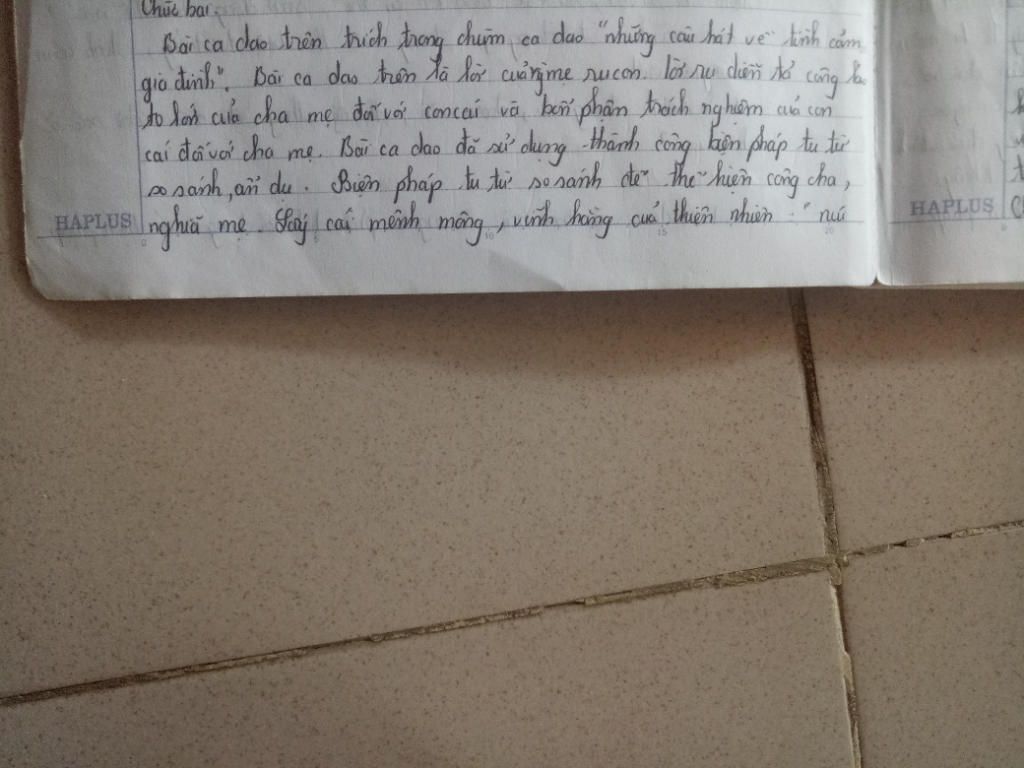 Chức bai
Bài ca dao trên trích trong chùm ca dao "những câu hát về tình cảm
gia đình". Bài ca dao trên là lời của mẹ ru con. lời ru diễn tả công la
to lớn của cha mẹ đối với con cái và bổn phận trách nghiệm của con
cái đối với cha mẹ. Bài ca dao đã sử dụng thành công biện pháp tu từ
so sánh, ẩn dụ. Biện pháp tu từ so sánh để thể hiện công cha,
HAPLUS nghĩa mẹ. Lấy cái mênh mông, vĩnh hằng của thiên nhiên "núi
HAPLUS